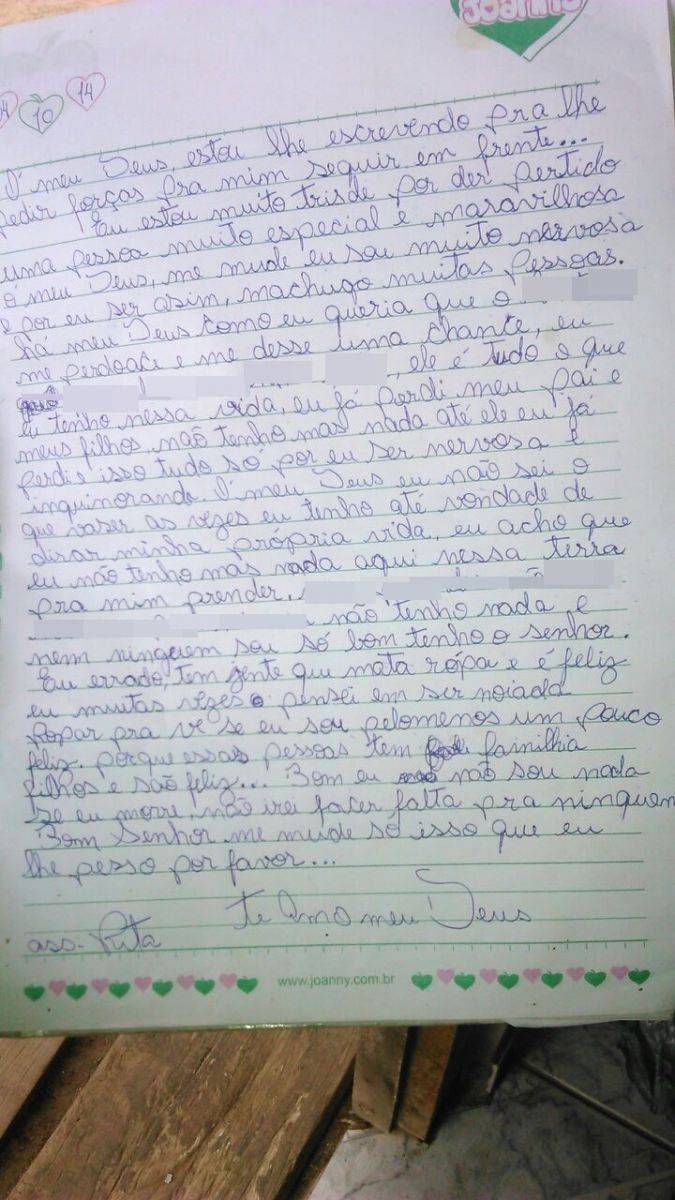 JOANNY
14 10 14
Ó meu Deus, estou lhe escrevendo pra lhe
pedir forças pra mim seguir em frente...
Eu estou muito trisde por der pertido
uma pessoa muito especial e maravilhosa
ó meu Deus, me mude eu sou muito nervosa
e por eu ser asim, machugo muitas pessoas.
há meu Deus como eu queria que o
me perdoace e me desse uma chante, eu
, ele é tudo o que
eu tenho nessa vida, eu já perdi meu pai e
meus filhos, não tenho mas nada até ele eu já
perdi e isso tudo só por eu ser nervosa e
inquinorande. Ó meu Deus eu não sei o
que vaser as vezes eu tenho até vondade de
dirar minha própria vida, eu acho que
eu não tenho mas nada aqui nessa terra
pra mim prender,
não tenho nada e
nem ninguem sou só bom tenho o senhor.
Eu errado, tem gente que mata rópa e é feliz
eu muitas vezes pensei em ser noiada
ropar pra ve se eu sou pelomenos um pouco
feliz. porque essas pessoas tem familhia
filhos e são feliz... Bom eu não sou nada
se eu morre, não irei facer falta pra ninquem
Bom Senhor me mude só isso que eu
lhe pesso por favor...
te Amo meu Deus
ass- Rita
www.joanny.com.br